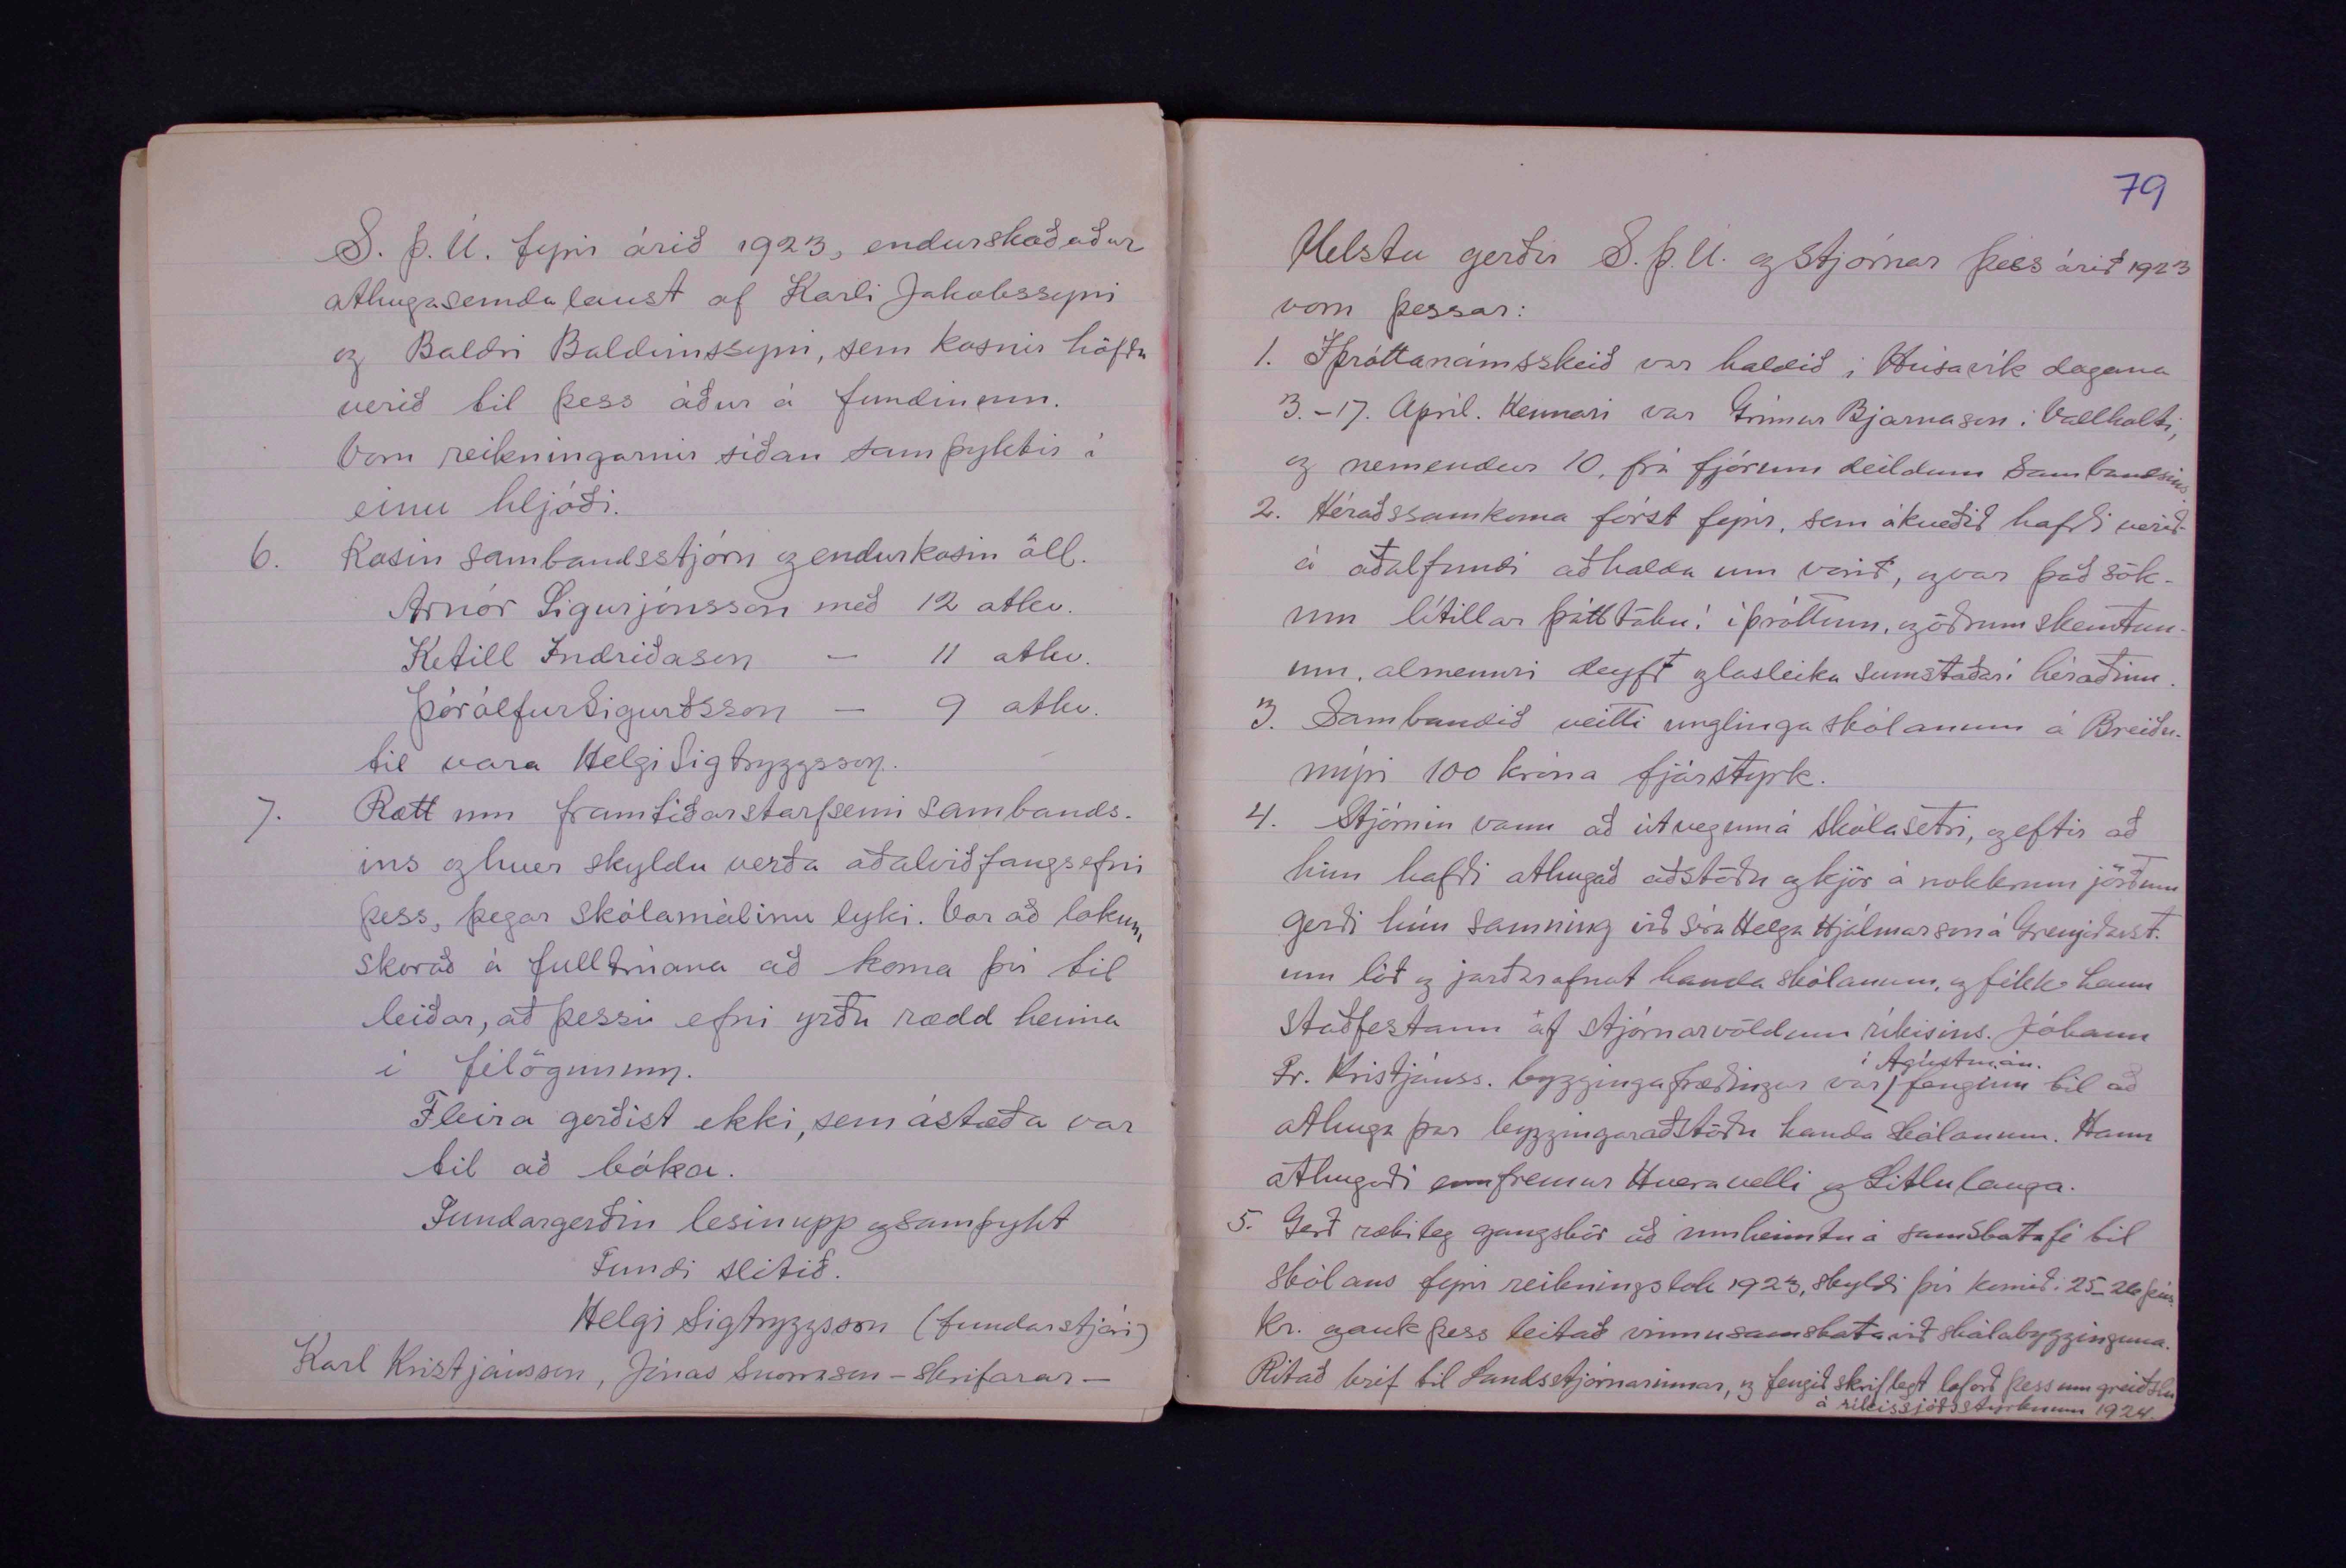 S. Þ. Ú. fyrir árið 1923, endurskoðaður
athugasemdalaust af Karli Jakobssyni
og Baldri Baldvinssyni, sem kosnir höfðu
verið til þess áður á fundinum.
Voru reikningarnir síðan samþyktir í
einu hljóði.
6. Kosin sambandsstjórn og endurkosin öll.
Arnór Sigurjónsson með 12 atkv.
Ketill Indriðason — 11 atkv.
Þórólfur Sigurðsson — 9 atkv.
til vara Helgi Sigtryggsson.
7. Rætt um framtíðarstarfsemi sambands-
ins og hver skyldu verða aðalviðfangsefni
þess, þegar skólamálinu lyki. Var að lokum
skorað á fulltrúana að koma því til
leiðar, að þessu efni yrðu rædd heima
í félögunum.
Fleira gerðist ekki, sem ástæða var
til að bóka.
Fundargerðin lesin upp og samþykt
Fundi slitið.
Helgi Sigtryggsson (fundarstjóri)
Karl Kristjánsson, Jónas Snorrason – skrifarar –
79
Helstu gerðir S. Þ. Ú. og stjórnar þess árið 1923
voru þessar:
1. Íþróttanámsskeið var haldið í Húsavík dagana
3.–17. Apríl. Kennari var Grímur Bjarnason í Vallholti,
og nemendur 10, frá fjórum deildum Sambandsins.
2. Héraðssamkoma fórst fyrir, sem ákveðið hafði verið
á aðalfundi að halda um vorið, og var það sök-
um lítillar þátttöku í íþróttum, og öðrum skemtun-
um, almennri deyfð og lasleika sumstaðar í héraðinu.
3. Sambandið veitti unglingaskólanum á Breiðu-
mýri 100 króna fjárstyrk.
4. Stjórnin vann að útvegun á skólasetri, og eftir að
hún hafði athugað aðstöðu og kjör á nokkrum jörðum
gerði hún samning við síra Helga Hjálmarson á Grenjaðarst.
um lóð og jarðarafnot handa skólanum, og fékk hann
staðfestann af stjórnarvöldum ríkisins. Jóhann
í Ágústmán.
Fr. Kristjánss. byggingafræðingur var fenginn til að
athuga þar byggingaraðstöðu handa skólanum. Hann
athugaði ennfremur Hveravelli og Litlulauga.
5. Gerð rækileg gangskör að innheimtu á samskotafé til
skólans fyrir reikningslok 1923, skyldi því komið í 25–26 þús.
kr. og auk þess leitað vinnusamskota við skólabygginguna.
Ritað bréf til Landsstjórnarinnar, og fengið skriflegt loforð þess um greiðslu
á ríkissjóðsstyrknum 1924.